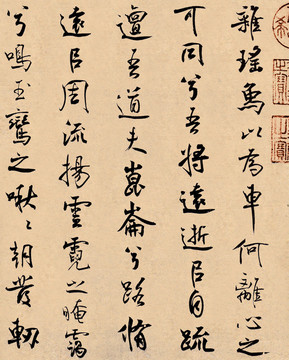 雜瑤象以為車何離心之
可同兮吾將遠逝㠯自疏
邅吾道夫崑崙兮路脩
遠㠯周流揚雲霓之晻靄
兮鳴玉鸞之啾〻朝發軔